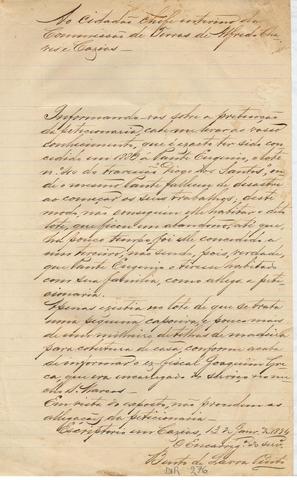 Ao Cidadão Chefe interino da
Commissão de Terras de Alfredo Cha-
ves e Caxias —
Informando-vos sobre a pretenção
da peticionaria, cabe-me levar a vosso
conhecimento, que é exacto ter sido con-
cedido em 1885 a Eugenio, o lote
nº do travessão "Diogo dos Santos", on-
de o mesmo falleceu de desastre
ao começar os seus trabalhos, deste
modo, não conseguio elle habitar o dito
lote, que ficou em abandono, até que,
ha pouco tempo, foi elle concedido a
um terceiro, não sendo, pois, verdade,
que Eugenio o tivesse habitado
com sua familia, como allega a peti-
cionaria.
Apenas existia no lote de que se trata
uma pequena capoeira, e pouco mais
de um milheiro de taboinhas
para coberta de casa, conforme acaba
de informar o ex-fiscal Joaquim
que era encarregado do serviço
Em vista do exposto, não procedem as
allegações da peticionaria.
Escriptorio em Caxias, 12 Janº de 1894
O Encarregº do serv.
Bento de Lavra Pinto
276